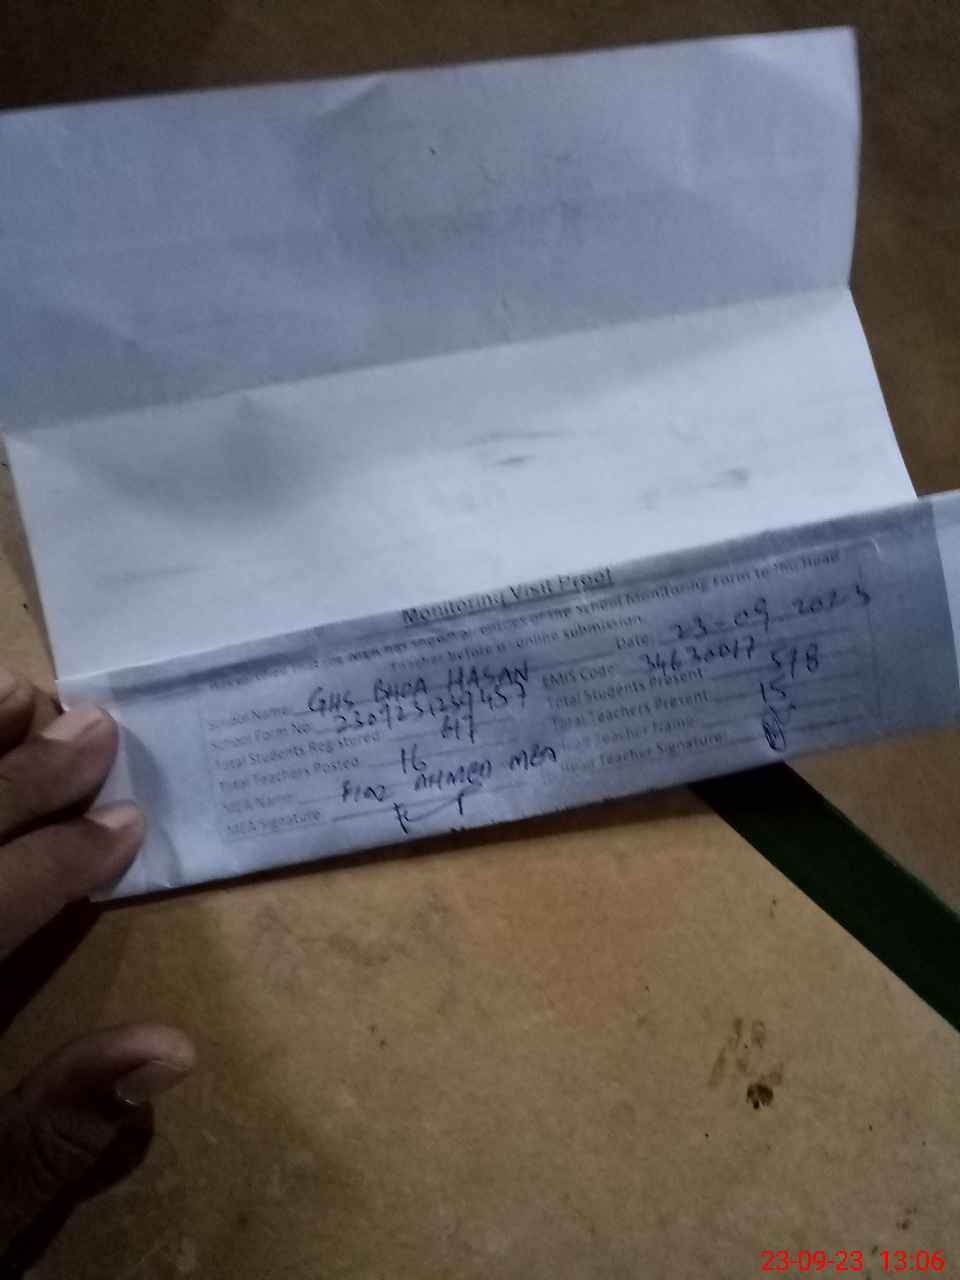 Monitoring Visit Proof
entries of the School Monitoring Form to the Head
Teacher before its online submission.
Date: 23-09-2023
School Name: GHS BHOA HASAN EMIS Code: 34630017
School Form No. Total Students Present: 518
Total Students Registered 617 Total Teachers Present: 15
Total Teachers Posted 16 Head Teacher Name:
MEA Name AHMED MEA Head Teacher Signature:
MEA Signature:
23-09-23 13:06